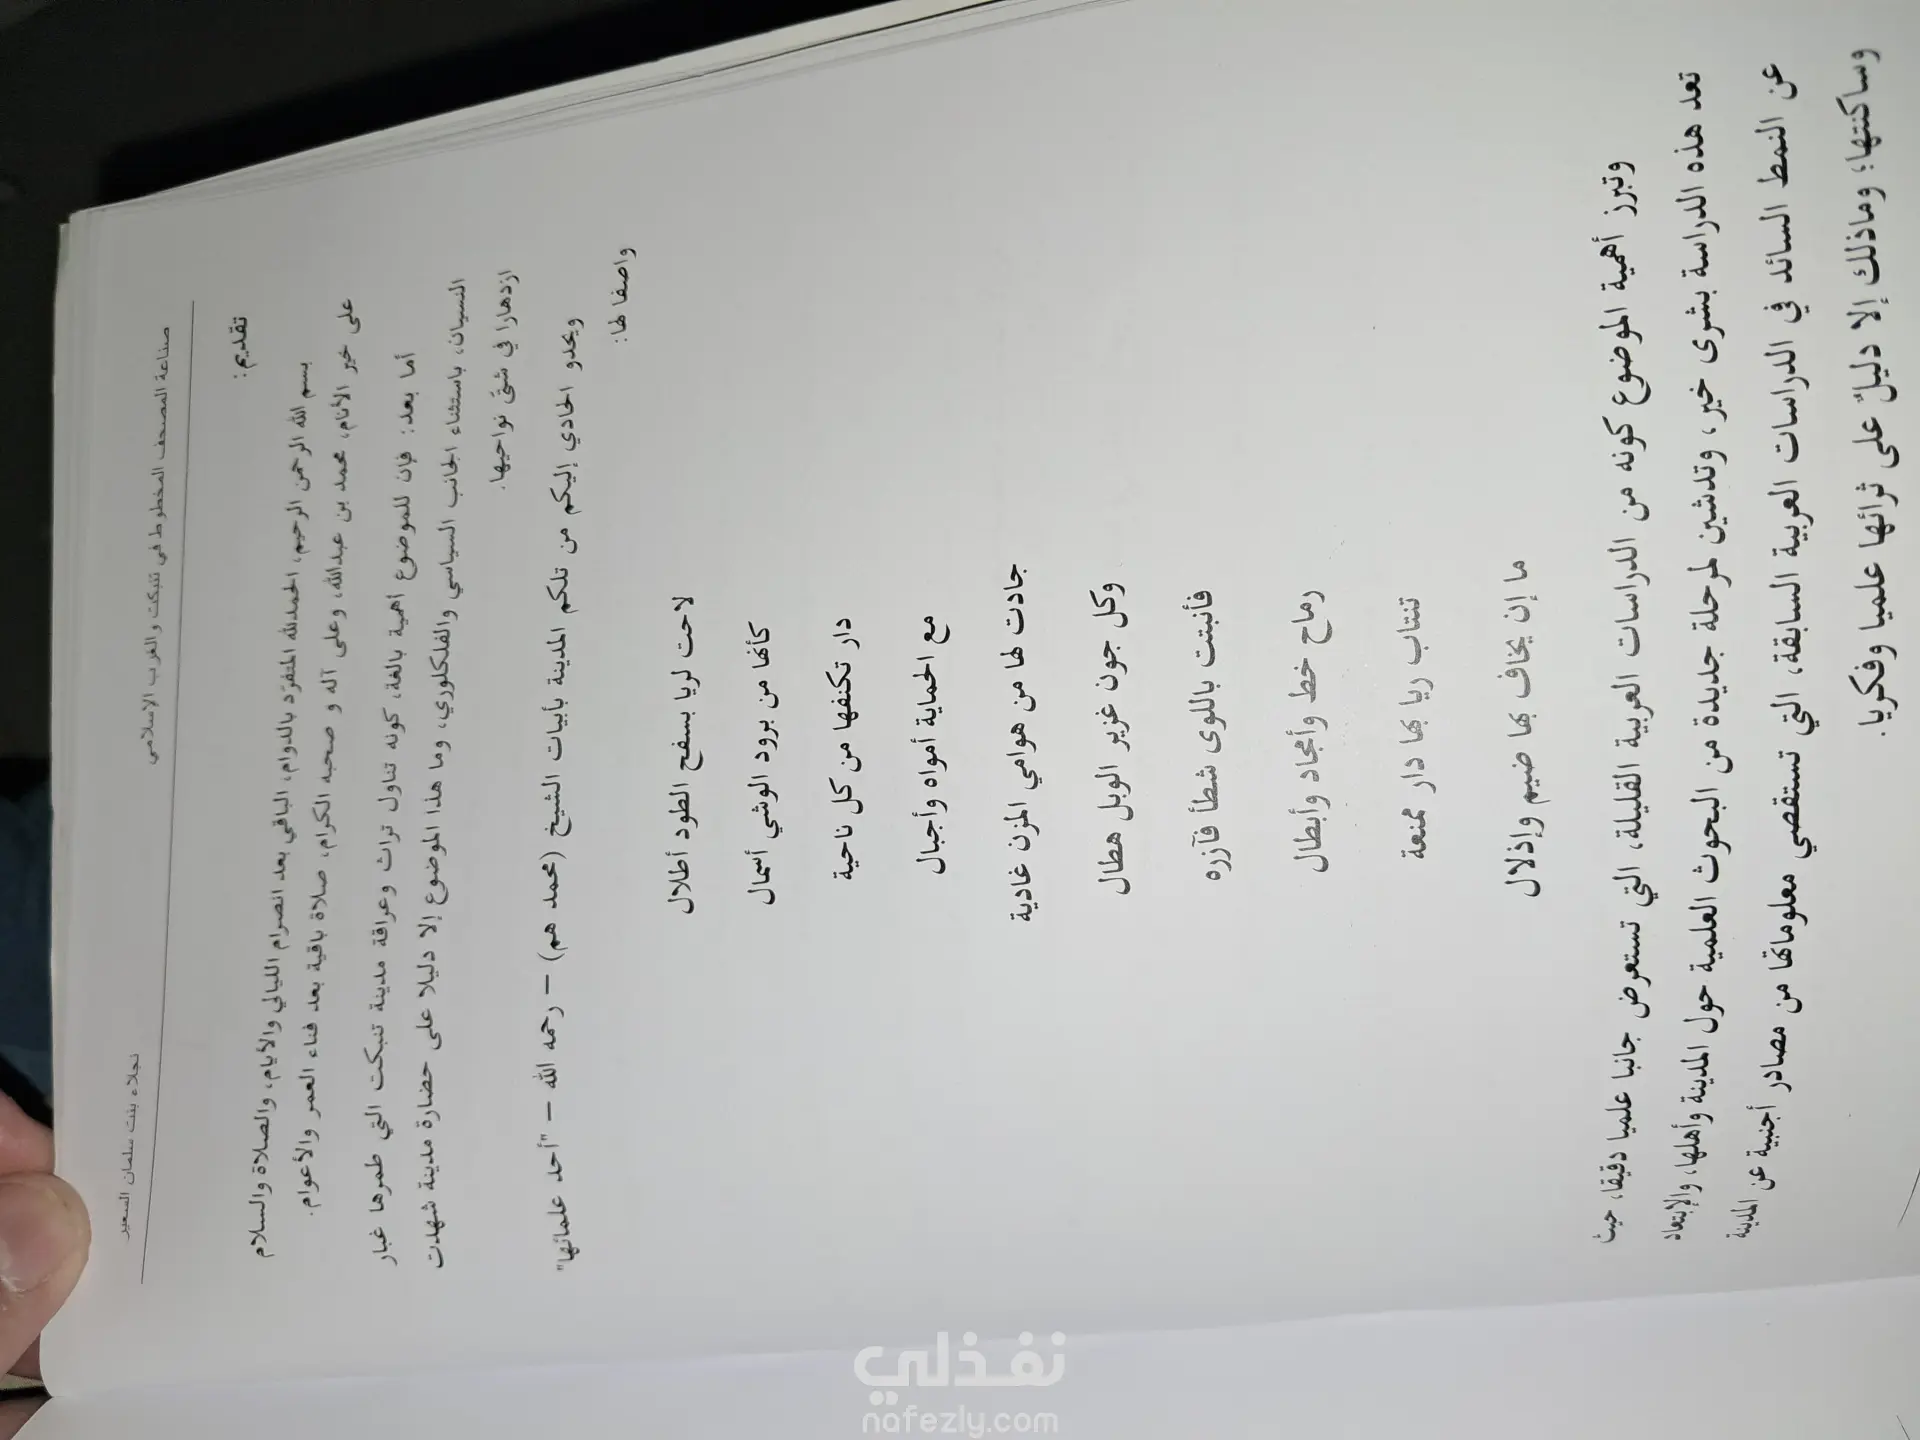 صناعة المصحف المخطوط في تنبكت والغرب الاسلامي
نجلاء بنت سلمان السعيد
تقديم:
بسم الله الرحمن الرحيم، الحمدلله المتفرّد بالدوام، الباقي بعد انصرام الليالي والأيام، والصلاة والسلام
على خير الأنام، محمد بن عبدالله، وعلى آله و صحبه الكرام، صلاة باقية بعد فناء العمر والأعوام.
أما بعد: فإن للموضوع أهمية بالغة، كونه تناول تراث وعراقة مدينة تنبكت التي طمرها غبار
النسيان، باستثناء الجانب السياسي والفلكلوري، وما هذا الموضوع إلا دليلا على حضارة مدينة شهدت
ازدهارا في شتّى نواحيها.
ويحدو الحادي إليكم من تلكم المدينة بأبيات الشيخ (محمد هم) – رحمه الله – "أحد علمائها"
واصفا لها:
لاحت لريا بسفح الطود أطلال
كأنها من برود الوشي أسمال
دار تكنفها من كل ناحية
مع الحماية أمواه وأجبال
جادت لها من هوامي المزن غادية
وكل جون غزير الوبل هطال
فأنبتت باللوى شطأ فآزره
رماح خط وأنجاد وأبطال
تنتاب ريا بها دار ممنعة
ما إن يخاف بها ضيم وإذلال
وتبرز أهمية الموضوع كونه من الدراسات العربية القليلة، التي تستعرض جانبا علميا دقيقا، حيث
تعد هذه الدراسة بشرى خير، وتدشين لمرحلة جديدة من البحوث العلمية حول المدينة وأهلها، والإبتعاد
عن النمط السائد في الدراسات العربية السابقة، التي تستقصي معلوماتها من مصادر أجنبية عن المدينة
وساكنتها؛ وماذلك إلا دليلٌ على ثرائها علميا وفكريا.
نفذلي
nafezly.com